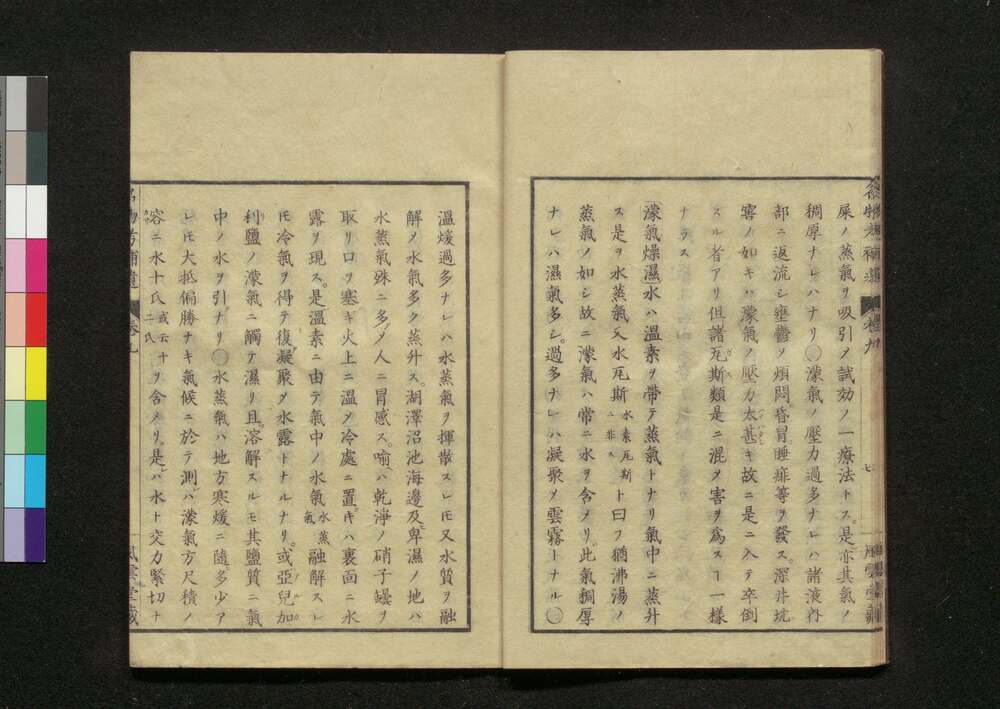 屎ノ蒸氣ヲ吸引ノ試効ノ一療法トス。是亦其氣ノ
稠厚ナレハナリ○濛氣ノ壓力過多ナレハ諸液内
部ニ返流シ壅鬱ヲ煩悶昏冒睡痱等ヲ發ス。深井坑
窖ノ如キハ濛氣ノ壓力太甚キ故ニ是ニ入テ卒倒
スル者アリ但諸瓦斯類是ニ混ヲ害ヲ爲スヿ一様
ナラス
濛氣燥濕水ハ温素ヲ帶テ蒸氣トナリ氣中ニ蒸升
ス是ヲ水蒸氣又水瓦斯水素瓦斯ニ非ストト曰フ猶沸湯ノ
蒸氣ノ如シ故ニ濛氣ハ常ニ水ヲ含メリ。此氣稠厚
ナレハ濕氣多シ。過多ナレハ凝聚ノ雲霧トナル○
温煖過多ナレハ水蒸氣ヲ揮散スレ𪜈又水質ヲ融
解ノ水氣多ク蒸升ス。湖澤沼池海邊及卑濕ノ地ハ
水蒸氣殊ニ多ノ人ニ冒感ス。喻ハ乾淨ノ硝子罎ヲ
取リ口ヲ塞キ火上ニ温ヌ冷處ニ置キハ裏面ニ水
露ヲ現ス。是温素ニ由テ氣中ノ水氣水蒸氣融解スレ
𪜈冷氣ヲ得テ復凝聚ノ水露トナルナリ。或亞兒加
利鹽ノ濛氣ニ觸テ濕リ且溶解スルモ其鹽質ニ氣
中ノ水ヲ引ナリ○水蒸氣ハ地方寒煖ニ隨多少ア
レ𪜈大抵偏勝ナキ氣候ニ於テ測ハ濛氣方尺積ノ
容ニ水十氏或云十二氏ヲ含メリ。是ハ水ト交力緊切ナ
名物考補遺
卷九
風雲堂藏
七